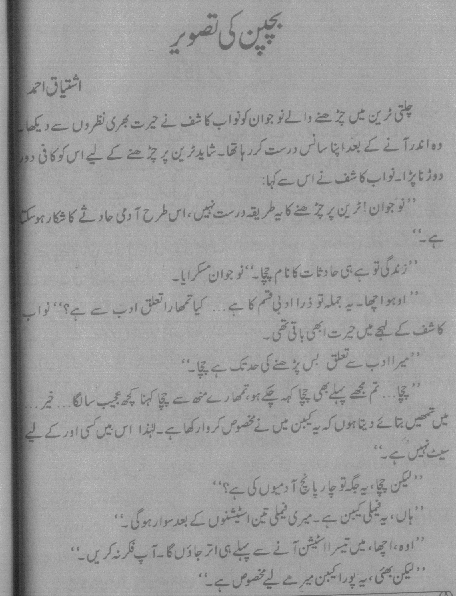 بچپن کی تصویر
اشتیاق احمد
چلتی ٹرین میں چڑھنے والے نوجوان کو نواب کاشف نے حیرت بھری نظروں سے دیکھا۔
وہ اندر آنے کے بعد اپنا سانس درست کر رہا تھا۔ شاید ٹرین پر چڑھنے کے لیے اس کو کافی دور
دوڑنا پڑا۔ نواب کاشف نے اس سے کہا:
’’نوجوان! ٹرین پر چڑھنے کا یہ طریقہ درست نہیں، اس طرح آدمی حادثے کا شکار ہو سکتا
ہے۔‘‘
’’زندگی تو ہے ہی حادثات کا نام چچا۔‘‘ نوجوان مسکرایا۔
’’اوہو اچھا۔ یہ جملہ تو ذرا ادبی قسم کا ہے... کیا تمھارا تعلق ادب سے ہے؟‘‘ نواب
کاشف کے لہجے میں حیرت ابھی باقی تھی۔
’’میرا ادب سے تعلق بس پڑھنے کی حد تک ہے چچا۔‘‘
’’چچا... تم مجھے پہلے بھی چچا کہہ چکے ہو، تمھارے منھ سے چچا کہنا کچھ عجیب سا لگا... خیر...
میں تمھیں بتائے دیتا ہوں کہ یہ کیبن میں نے مخصوص کروا رکھا ہے۔ لہٰذا اس میں کسی اور کے لیے
سیٹ نہیں ہے۔‘‘
’’لیکن چچا، یہ جگہ تو چار پانچ آدمیوں کی ہے؟‘‘
’’ہاں، یہ فیملی کیبن ہے۔ میری فیملی تین اسٹیشنوں کے بعد سوار ہوگی۔‘‘
’’اوہ، اچھا، میں تیسرا اسٹیشن آنے سے پہلے ہی اتر جاؤں گا۔ آپ فکر نہ کریں۔‘‘
’’لیکن بھئی، یہ پورا کیبن میرے لیے مخصوص ہے۔‘‘